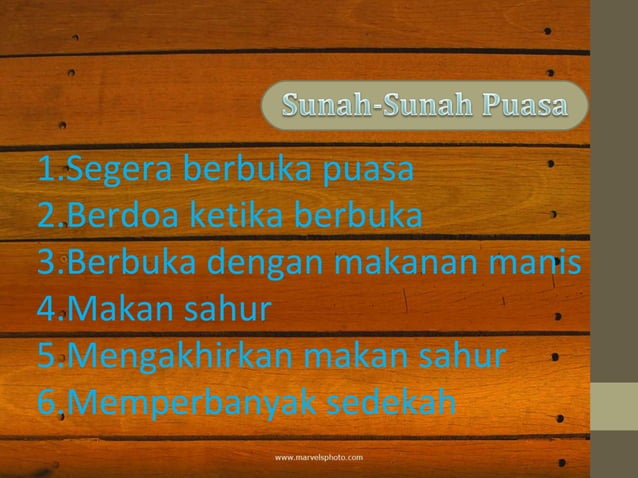 Sunah-Sunah Puasa
1.Segera berbuka puasa
2.Berdoa ketika berbuka
3.Berbuka dengan makanan manis
4.Makan sahur
5.Mengakhirkan makan sahur
6.Memperbanyak sedekah
www.marvelsphoto.com